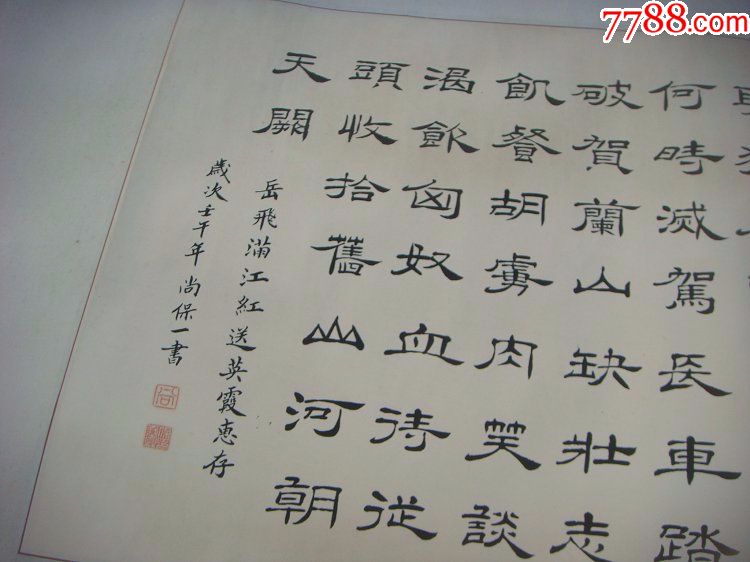 7788.com
何時滅駕長車踏
破賀蘭山缺壯志
飢餐胡虜肉笑談
渴飲匈奴血待從
頭收拾舊山河朝
天闕
岳飛滿江紅送英霞惠存
歲次壬午年尚保一書